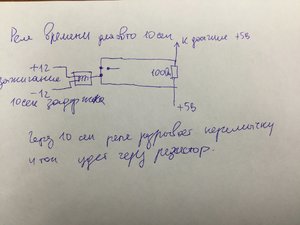 Реле времени на 10 сек
К датчик +5В
+12
зажигание
100Ω
-12
10сек задержка
+5В
Через 10 сек реле разрывает перемычку
и ток идет через резистор.